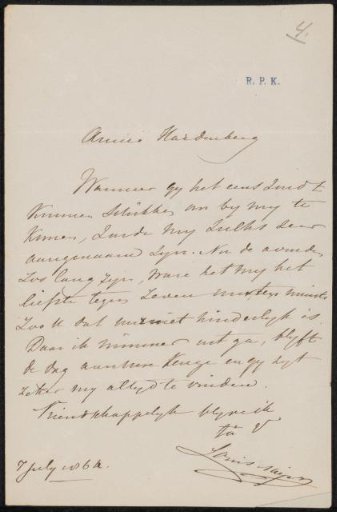 4.
R. P. K.
Amice Hardenberg
Wanneer gy het eens zoudt
Kunnen Schikken om by my te
Komen, zoude my zulks zeer
aangenaam zyn. Nu de avonden
zoo lang zyn, ware het my het
liefste tegen zeven
zoo U dat niet hinderlyk is
Daar ik nimmer uit ga, blyft
de dag aan uwe Keuze en gy zyt
zeker my altyd te vinden.
Vriendschappelyk blyve ik
tà V
Louis
7 July 1864.